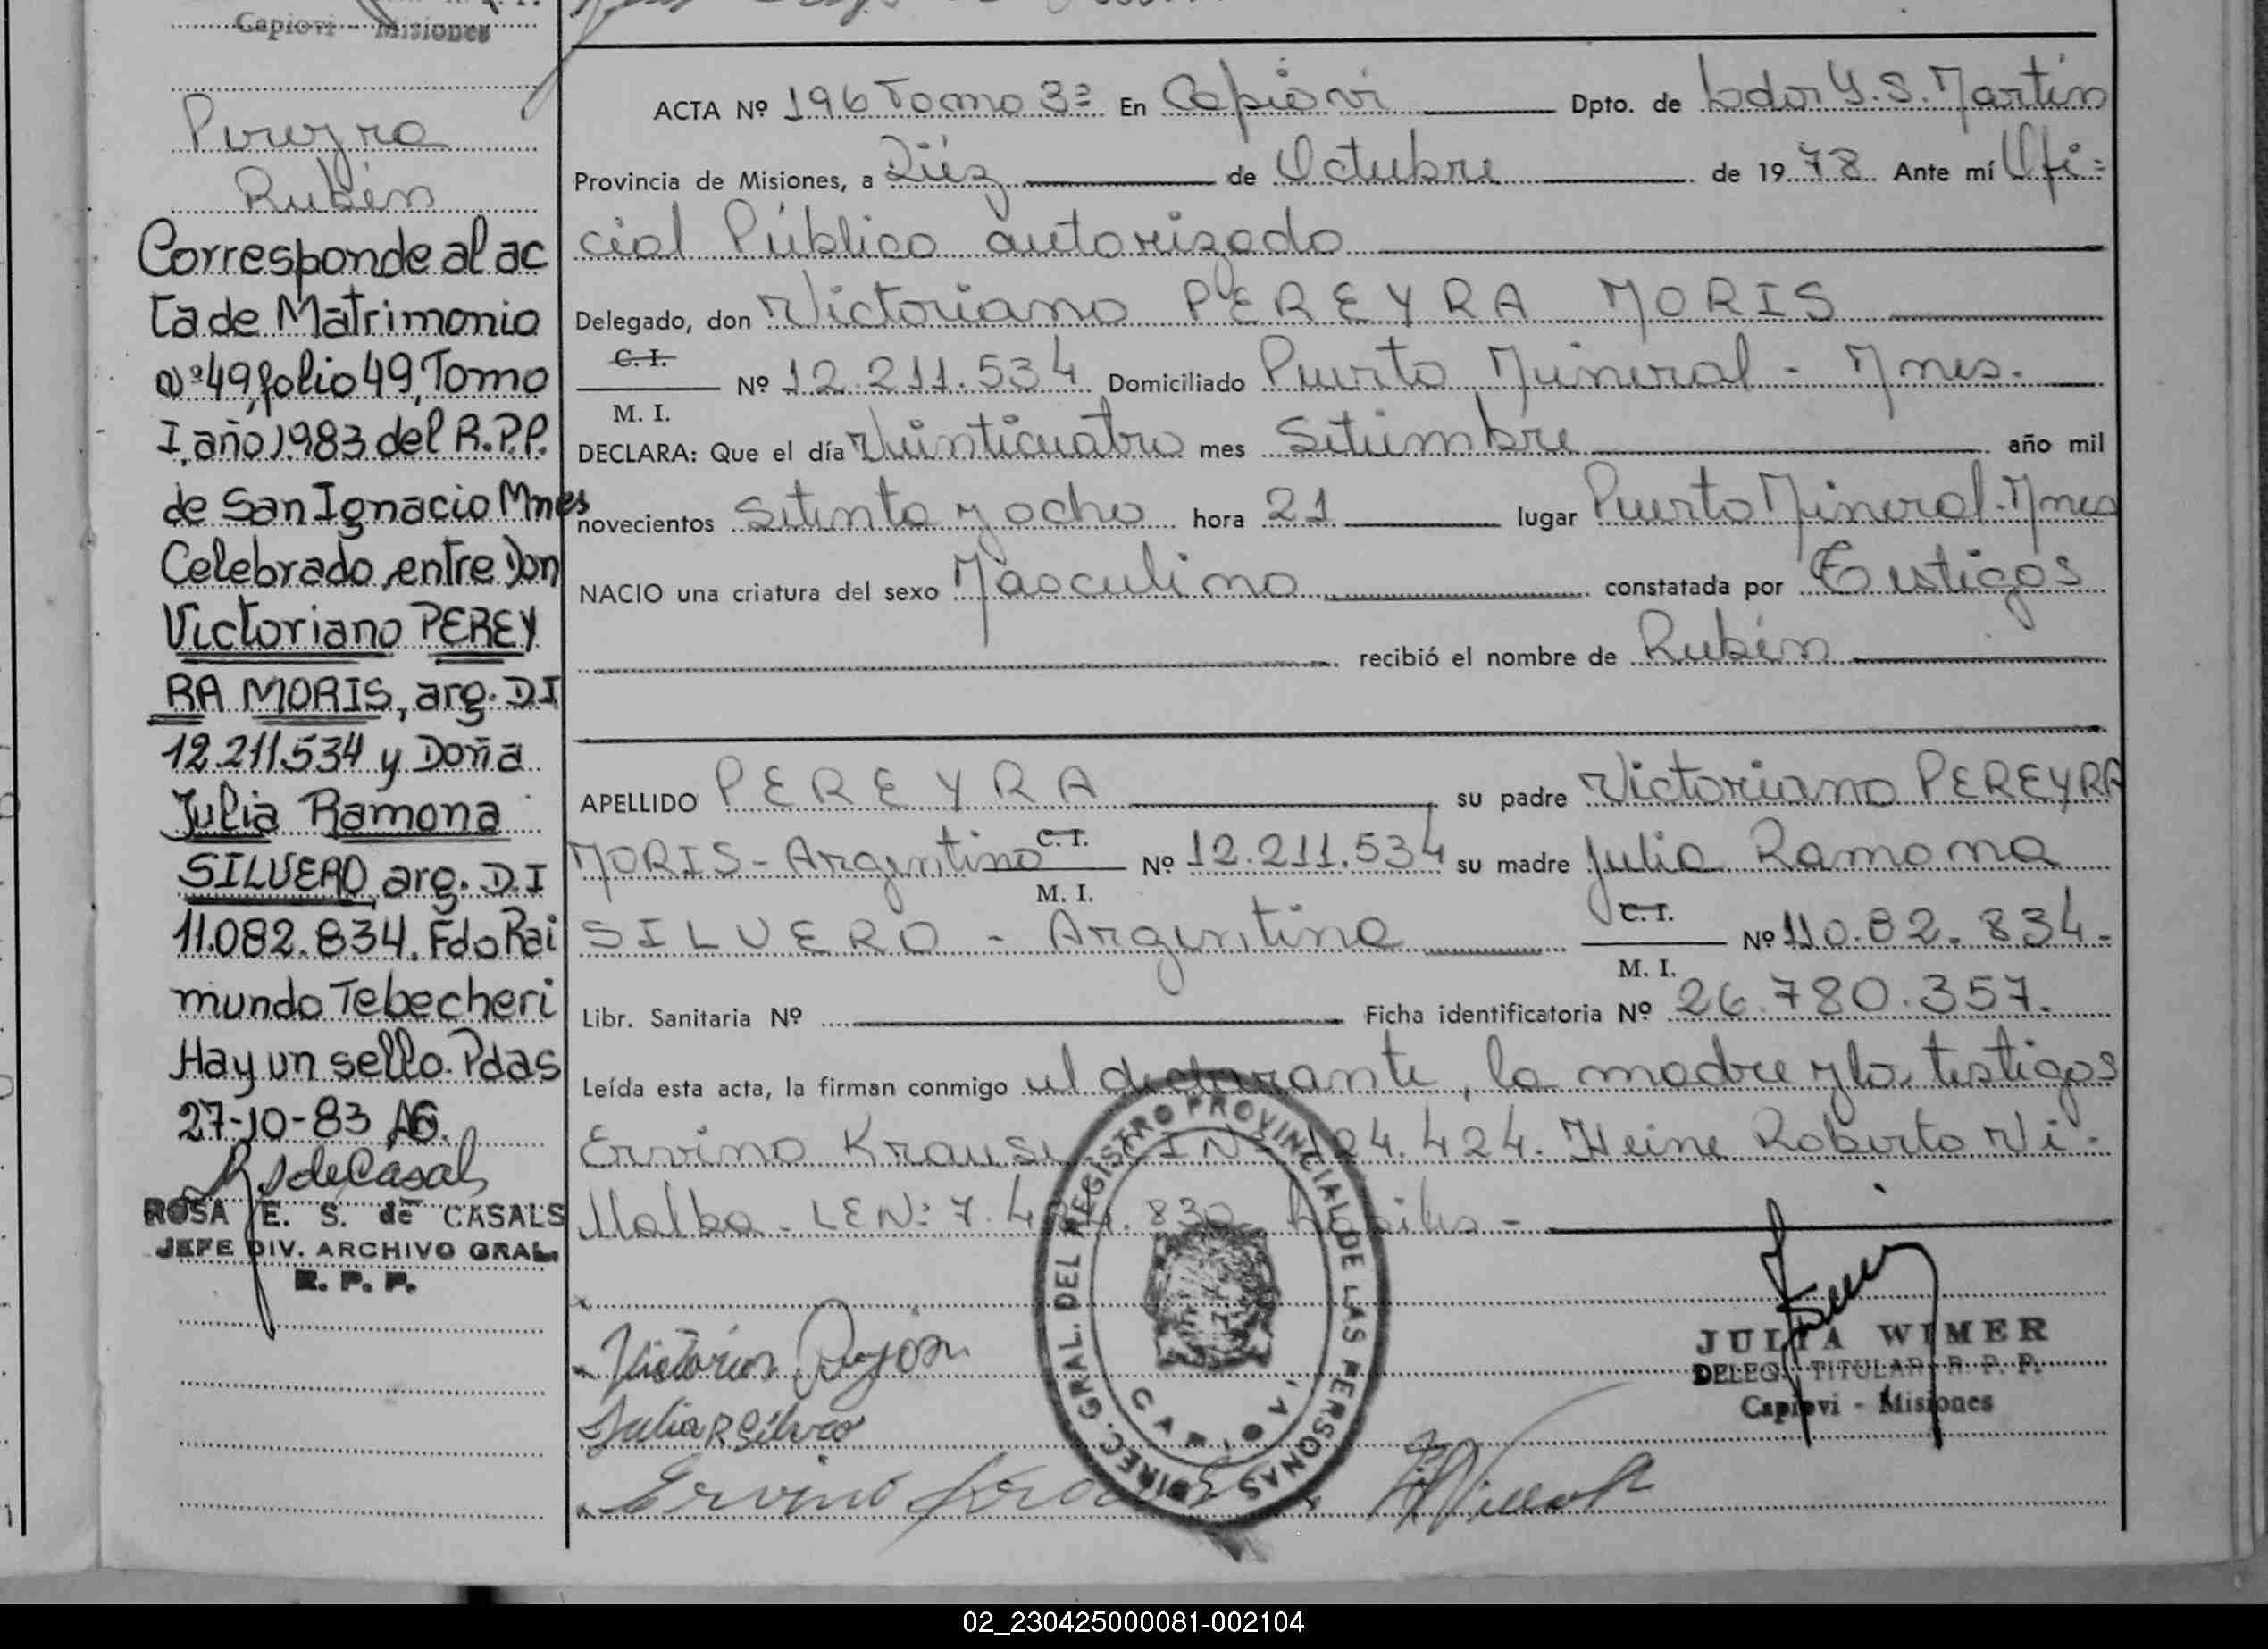 Capiovi - Misiones
Pereyra
Rubén
Corresponde al ac
ta de Matrimonio
Nº 49, folio 49, Tomo
I, año 1983 del R.P.P.
de San Ignacio Mnes
Celebrado, entre Don
Victoriano PEREY
RA MORIS, arg. D.I
12.211.534 y Doña
Julia Ramona
SILVERO, arg. D.I
11.082.834. Fdo Rai
mundo Tebecheri
Hay un sello. Pdas
27-10-83
RSdeCasals
ROSA E. S. de CASALS
JEFE DIV. ARCHIVO GRAL.
R. P. P.
ACTA Nº 196 Tomo 3º En Capiovi Dpto. de Ldor G.S. Martín
Provincia de Misiones, a Diéz de Octubre de 1978 Ante mí Ofi=
cial Público autorizado
Delegado, don Victoriano PEREYRA MORIS
C. I.
M. I. Nº 12.211.534 Domiciliado Puerto Mineral - Mnes.
DECLARA: Que el día Veinticuatro mes Setiembre año mil
novecientos Setenta y ocho hora 21 lugar Puerto Mineral-Mnes
NACIO una criatura del sexo Masculino constatada por Testigos
recibió el nombre de Rubén
APELLIDO PEREYRA su padre Victoriano PEREYRA
MORIS - Argentino C. I. M. I. Nº 12.211.534 su madre Julia Ramona
SILVERO - Argentina C. I. M. I. Nº 110.82.834.-
Libr. Sanitaria Nº Ficha identificatoria Nº 26.780.357.
Leída esta acta, la firman conmigo el declarante, la madre y los testigos
Ervino Krause 424. Heine Roberto Vi=
llalba - LE Nº 7. 830
Julia R Silvero
Ervino Krause
DIREC. GRAL. DEL REGISTRO PROVINCIAL DE LAS PERSONAS
CAPIOVI
JULIA WIMER
DELEG. TITULAR R. P. P.
Capiovi - Misiones
02_230425000081-002104